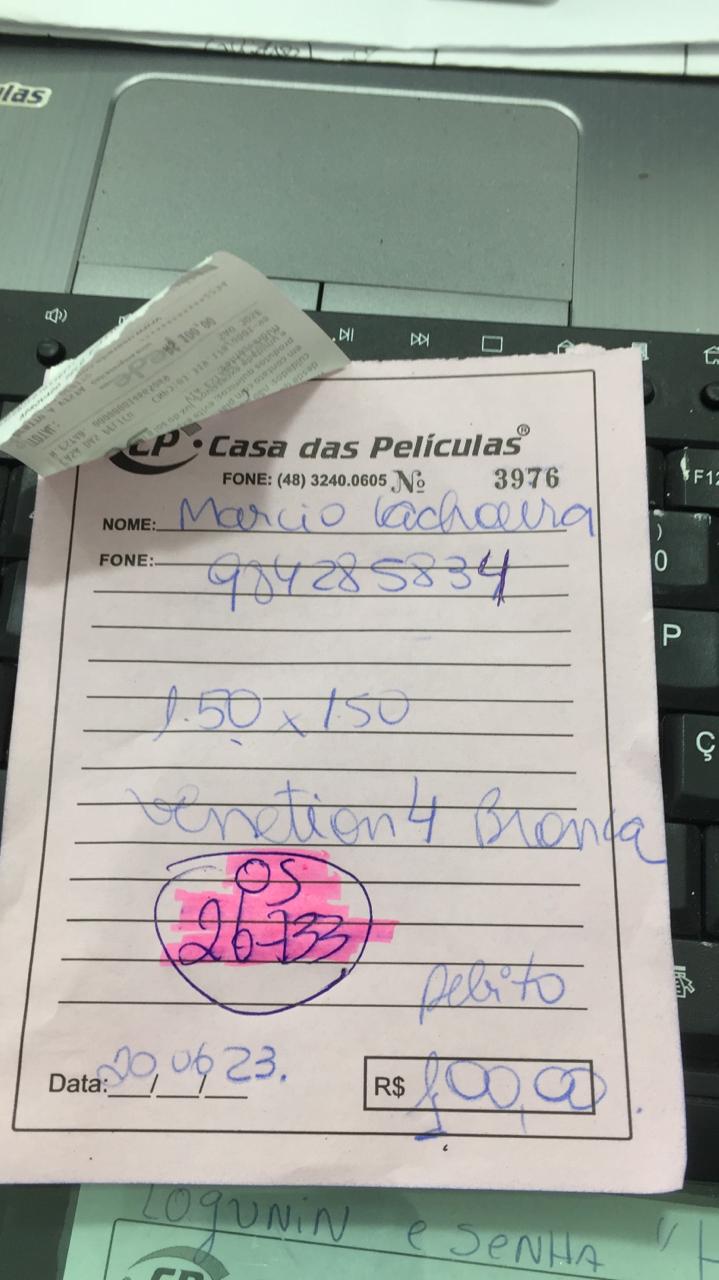 las
100,00
CP • Casa das Películas®
FONE: (48) 3240.0605 Nº 3976
NOME: Marcio Cachoeira
FONE: 984285834
1.50 x 1.50
Venetion 4 Bronca
OS
26733
Debito
Data: 20/06/23. R$ 100,00
F12
0
P
Ç
LOGUNIN e SENHA "H
CP